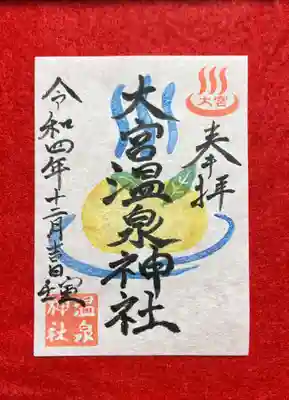 奉拝
大宮
大宮温泉神社
令和四年十二月吉日
温泉
神社